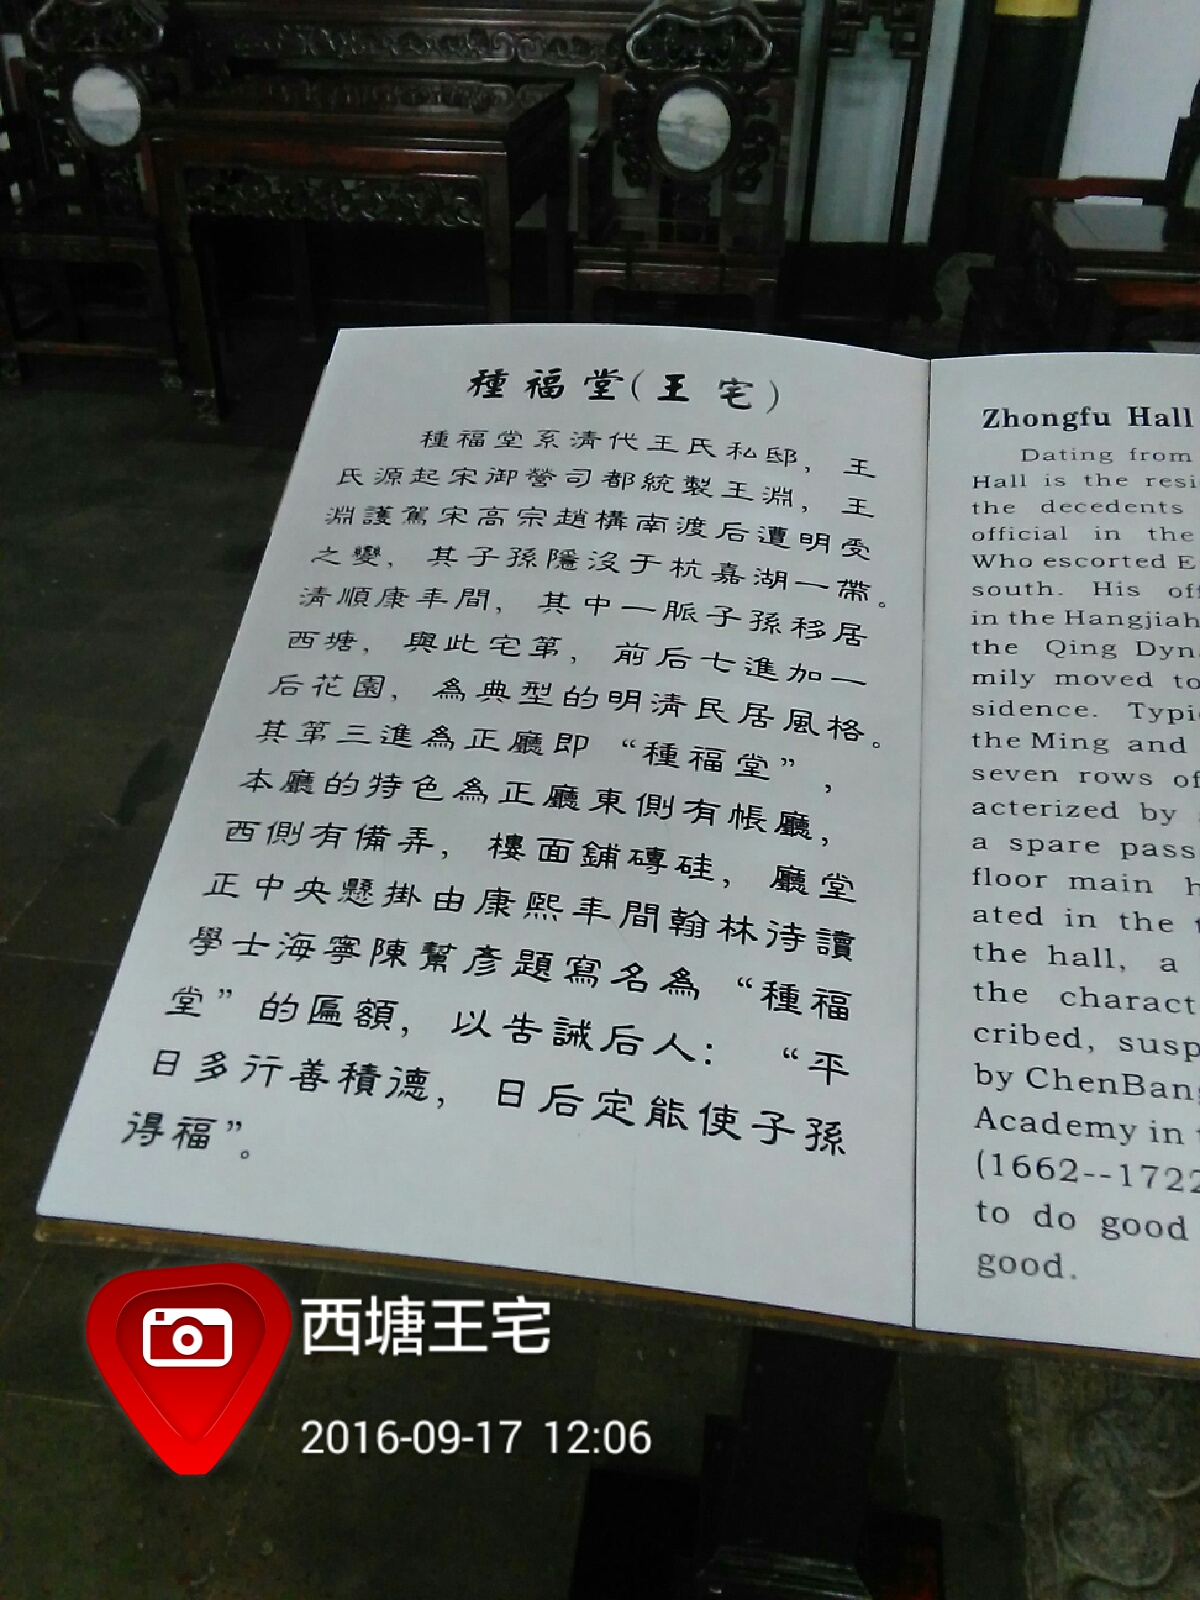 種福堂(王宅)
種福堂系清代王氏私邸，王
氏源起宋御營司都統製王淵，王
淵護駕宋高宗趙構南渡后遭明受
之變，其子孫隱沒于杭嘉湖一帶。
清順康年間，其中一脈子孫移居
西塘，與此宅第，前后七進加一
后花園，為典型的明清民居風格。
其第三進為正廳即“種福堂”，
本廳的特色為正廳東側有帳廳，
西側有備弄，樓面鋪磚硅，廳堂
正中央懸掛由康熙年間翰林待讀
學士海寧陳幫彥題寫名為“種福
堂”的匾額，以告誡后人：“平
日多行善積德，日后定能使子孫
得福”。
Zhongfu Hall
Dating from
Hall is the resi
the decedents
official in the
Who escorted E
south. His off
in the Hangjiah
the Qing Dyn
mily moved to
sidence. Typi
the Ming and
seven rows of
acterized by
a spare pass
floor main h
ated in the t
the hall, a
the charact
cribed, susp
by ChenBang
Academy in t
(1662--1722
to do good
good.
西塘王宅
2016-09-17 12:06